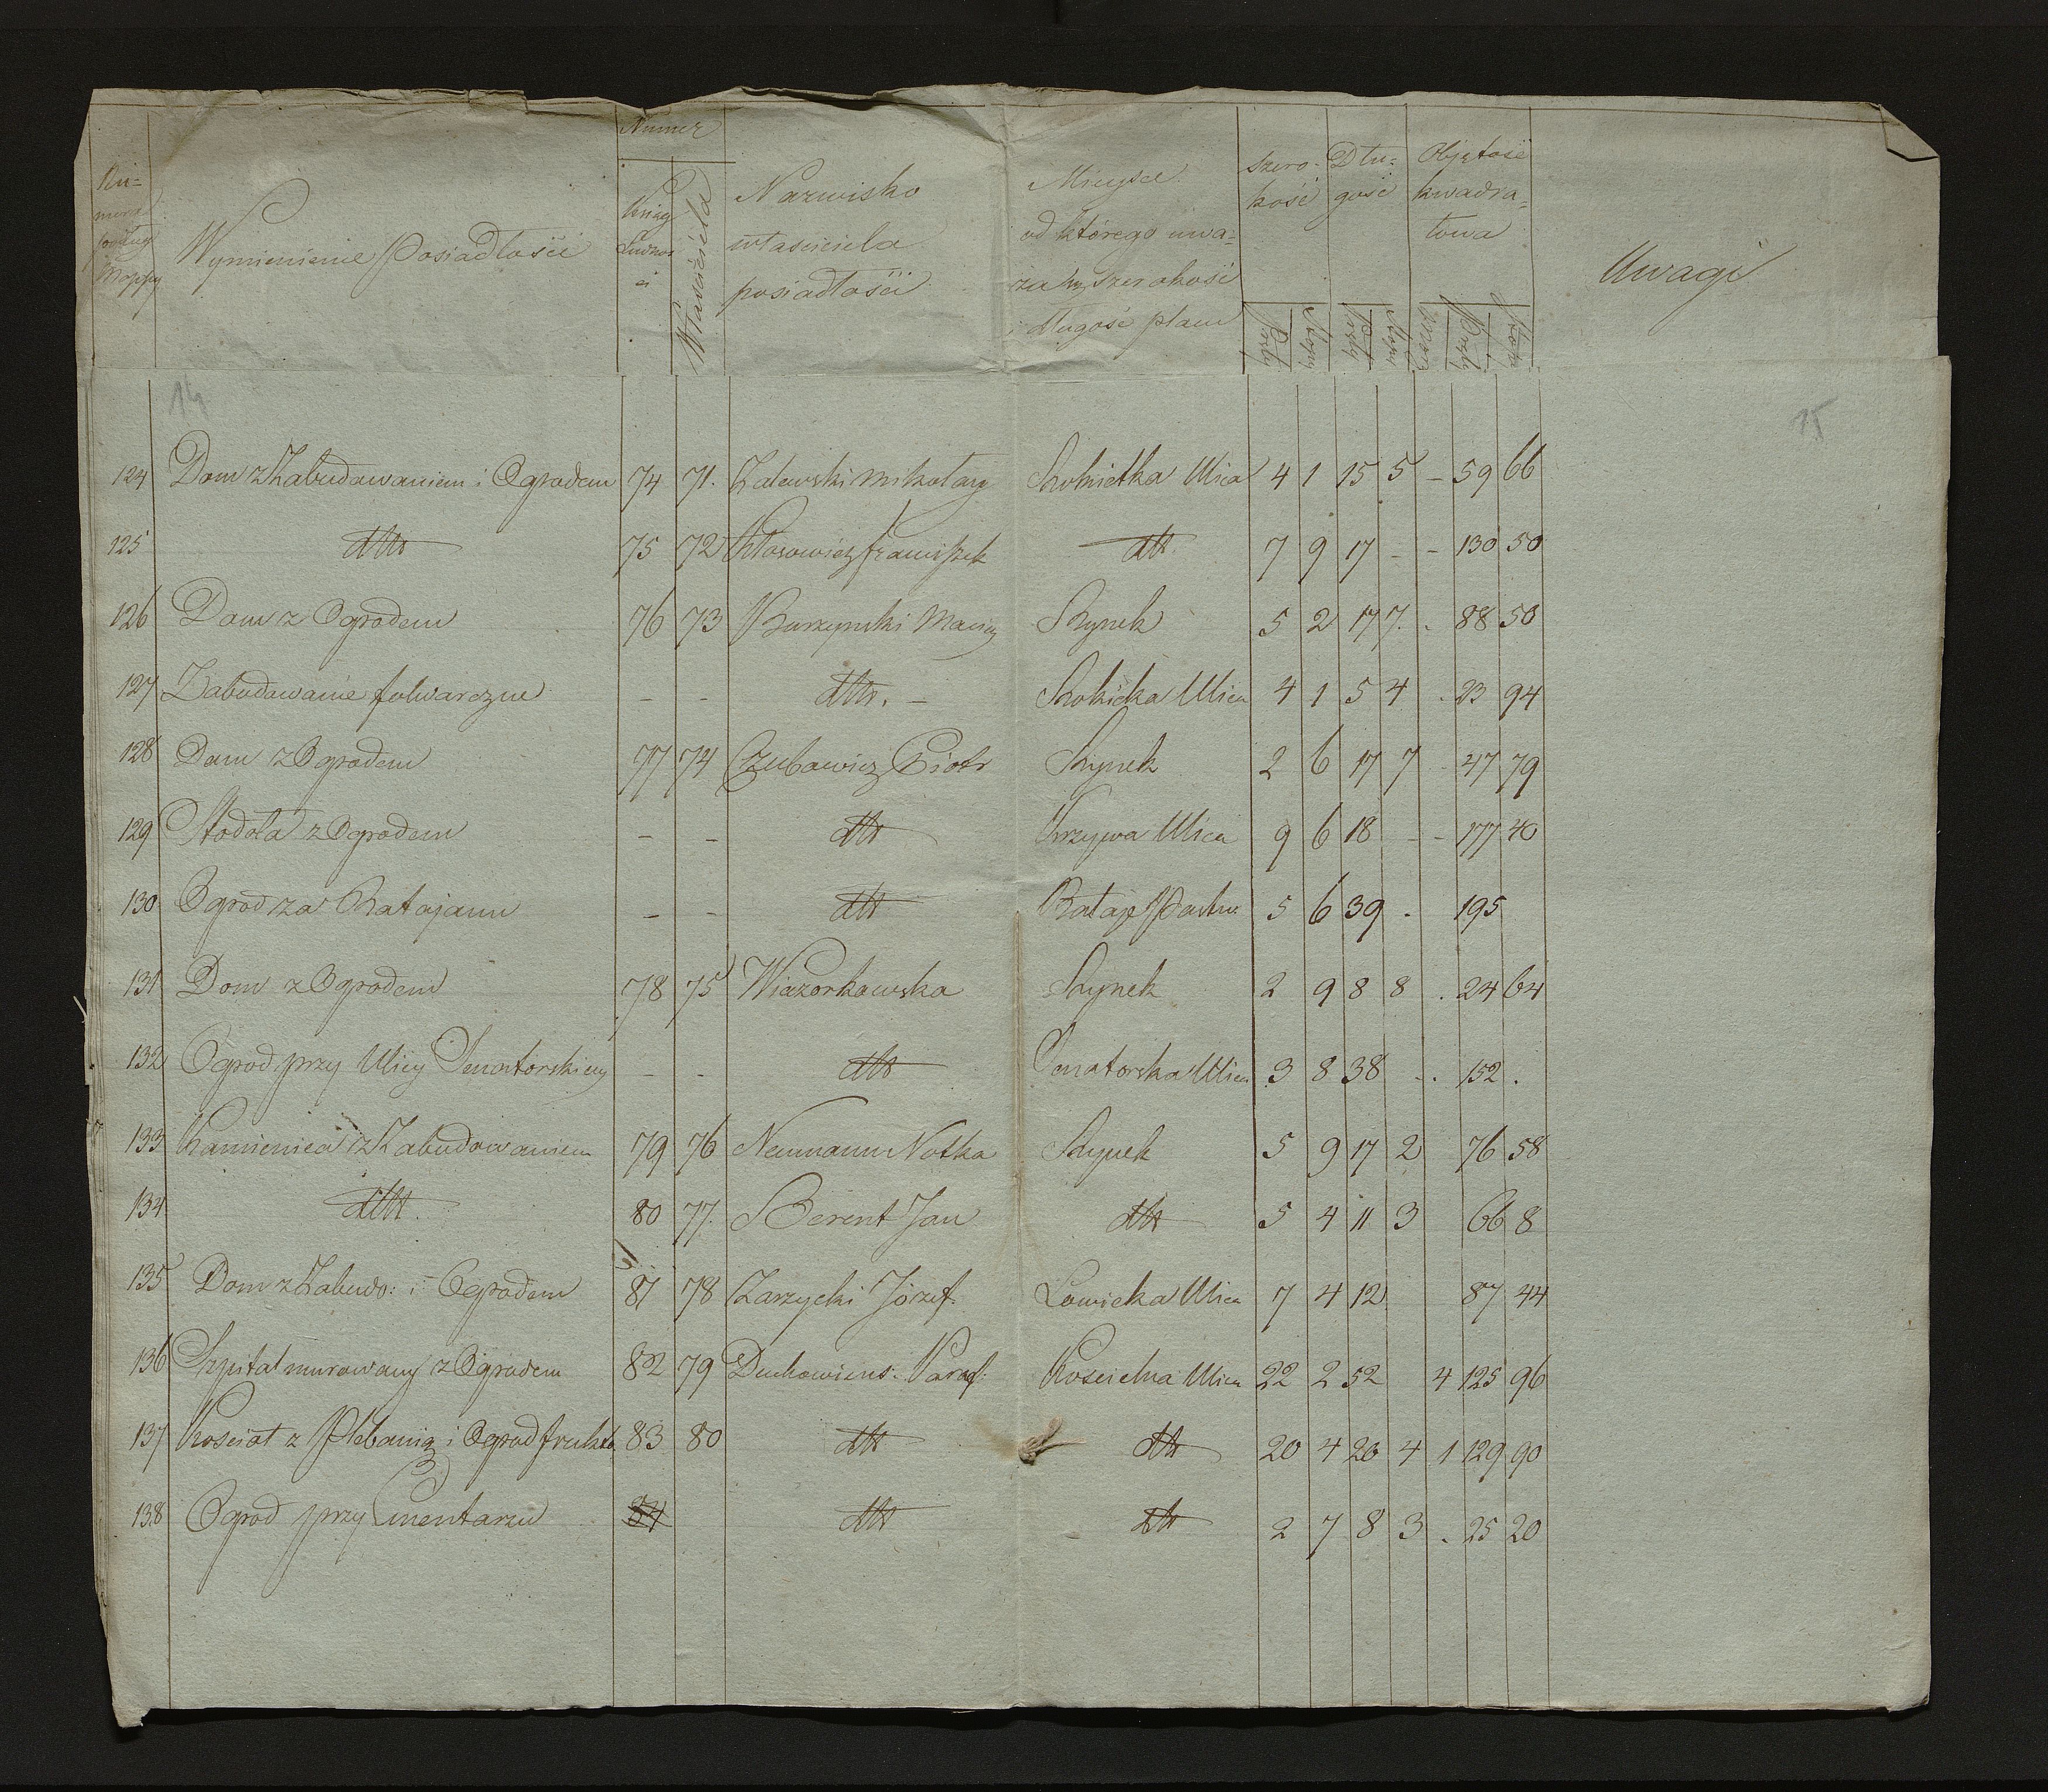 Numer
Nu=
mera
podług
Mappy
Wymienienie Posiadłości
Księg
Ludnoś
ci
Właściciela
Nazwisko
właściciela
posiadłości
Mieysce
od którego uwa=
za szerokość
i długość placu
Szero=
kość
Dłu=
gość
Objętość
kwadra=
towa
Pręty
Stopy
Pręty
Stopy
Morg
Pręty
Stopy
Uwagi
14
15
124 Dom z Zabudowaniem i Ogrodem 74 71. Zalewski Mikołay Ulica 4 1 15 5 - 59 66
125 dtto 75 72 Kłosowicz Franciszek dtt 7 9 17 - - 130 50
126 Dom z Ogrodem 76 73 Burzynski Maciey Rynek 5 2 17 7. . 88 50
127 Zabudowanie folwarczne - - dtto. - Ulica 4 1 5 4 . 23 94
128 Dom z Ogrodem 77 74 Czubowicz Piotr Rynek 2 6 17 7 - 47 79
129 Stodoła z Ogrodem - - dtt Krzywa Ulica 9 6 18 - - 177 40
130 Ogrod za Ratajami - - dtt Rataje 5 6 39 - 195
131 Dom z Ogrodem 78 75 Wiazorkowska Rynek 2 9 8 8 . 24 64
132 Ogrod przy Ulicy Senatorskiey - - dtt Senatorska Ulica 3 8 38 - . 152 .
133 Kamienica z Zabudowaniem 79 76 Neumann Notka Rynek 5 9 17 2 76 58
134 dtt. 80 77. Berent Jan dtt 5 4 11 3 66 8
135 Dom z Zabudo: i Ogrodem 81 78 Zarzycki Józef. Lowicka Ulica 7 4 12 87 44
136 Szpital murowany z Ogrodem 82 79 Duchowiens: Paraf: Koscielna Ulica 22 2 52 4 125 96
137 Kosciol z Plebanią i Ogrod frukto 83 80 dtt dtt 20 4 20 4 1 129 90
138 Ogrod przy Cmentarzu 84 dtt dtt 2 7 8 3 . 25 20